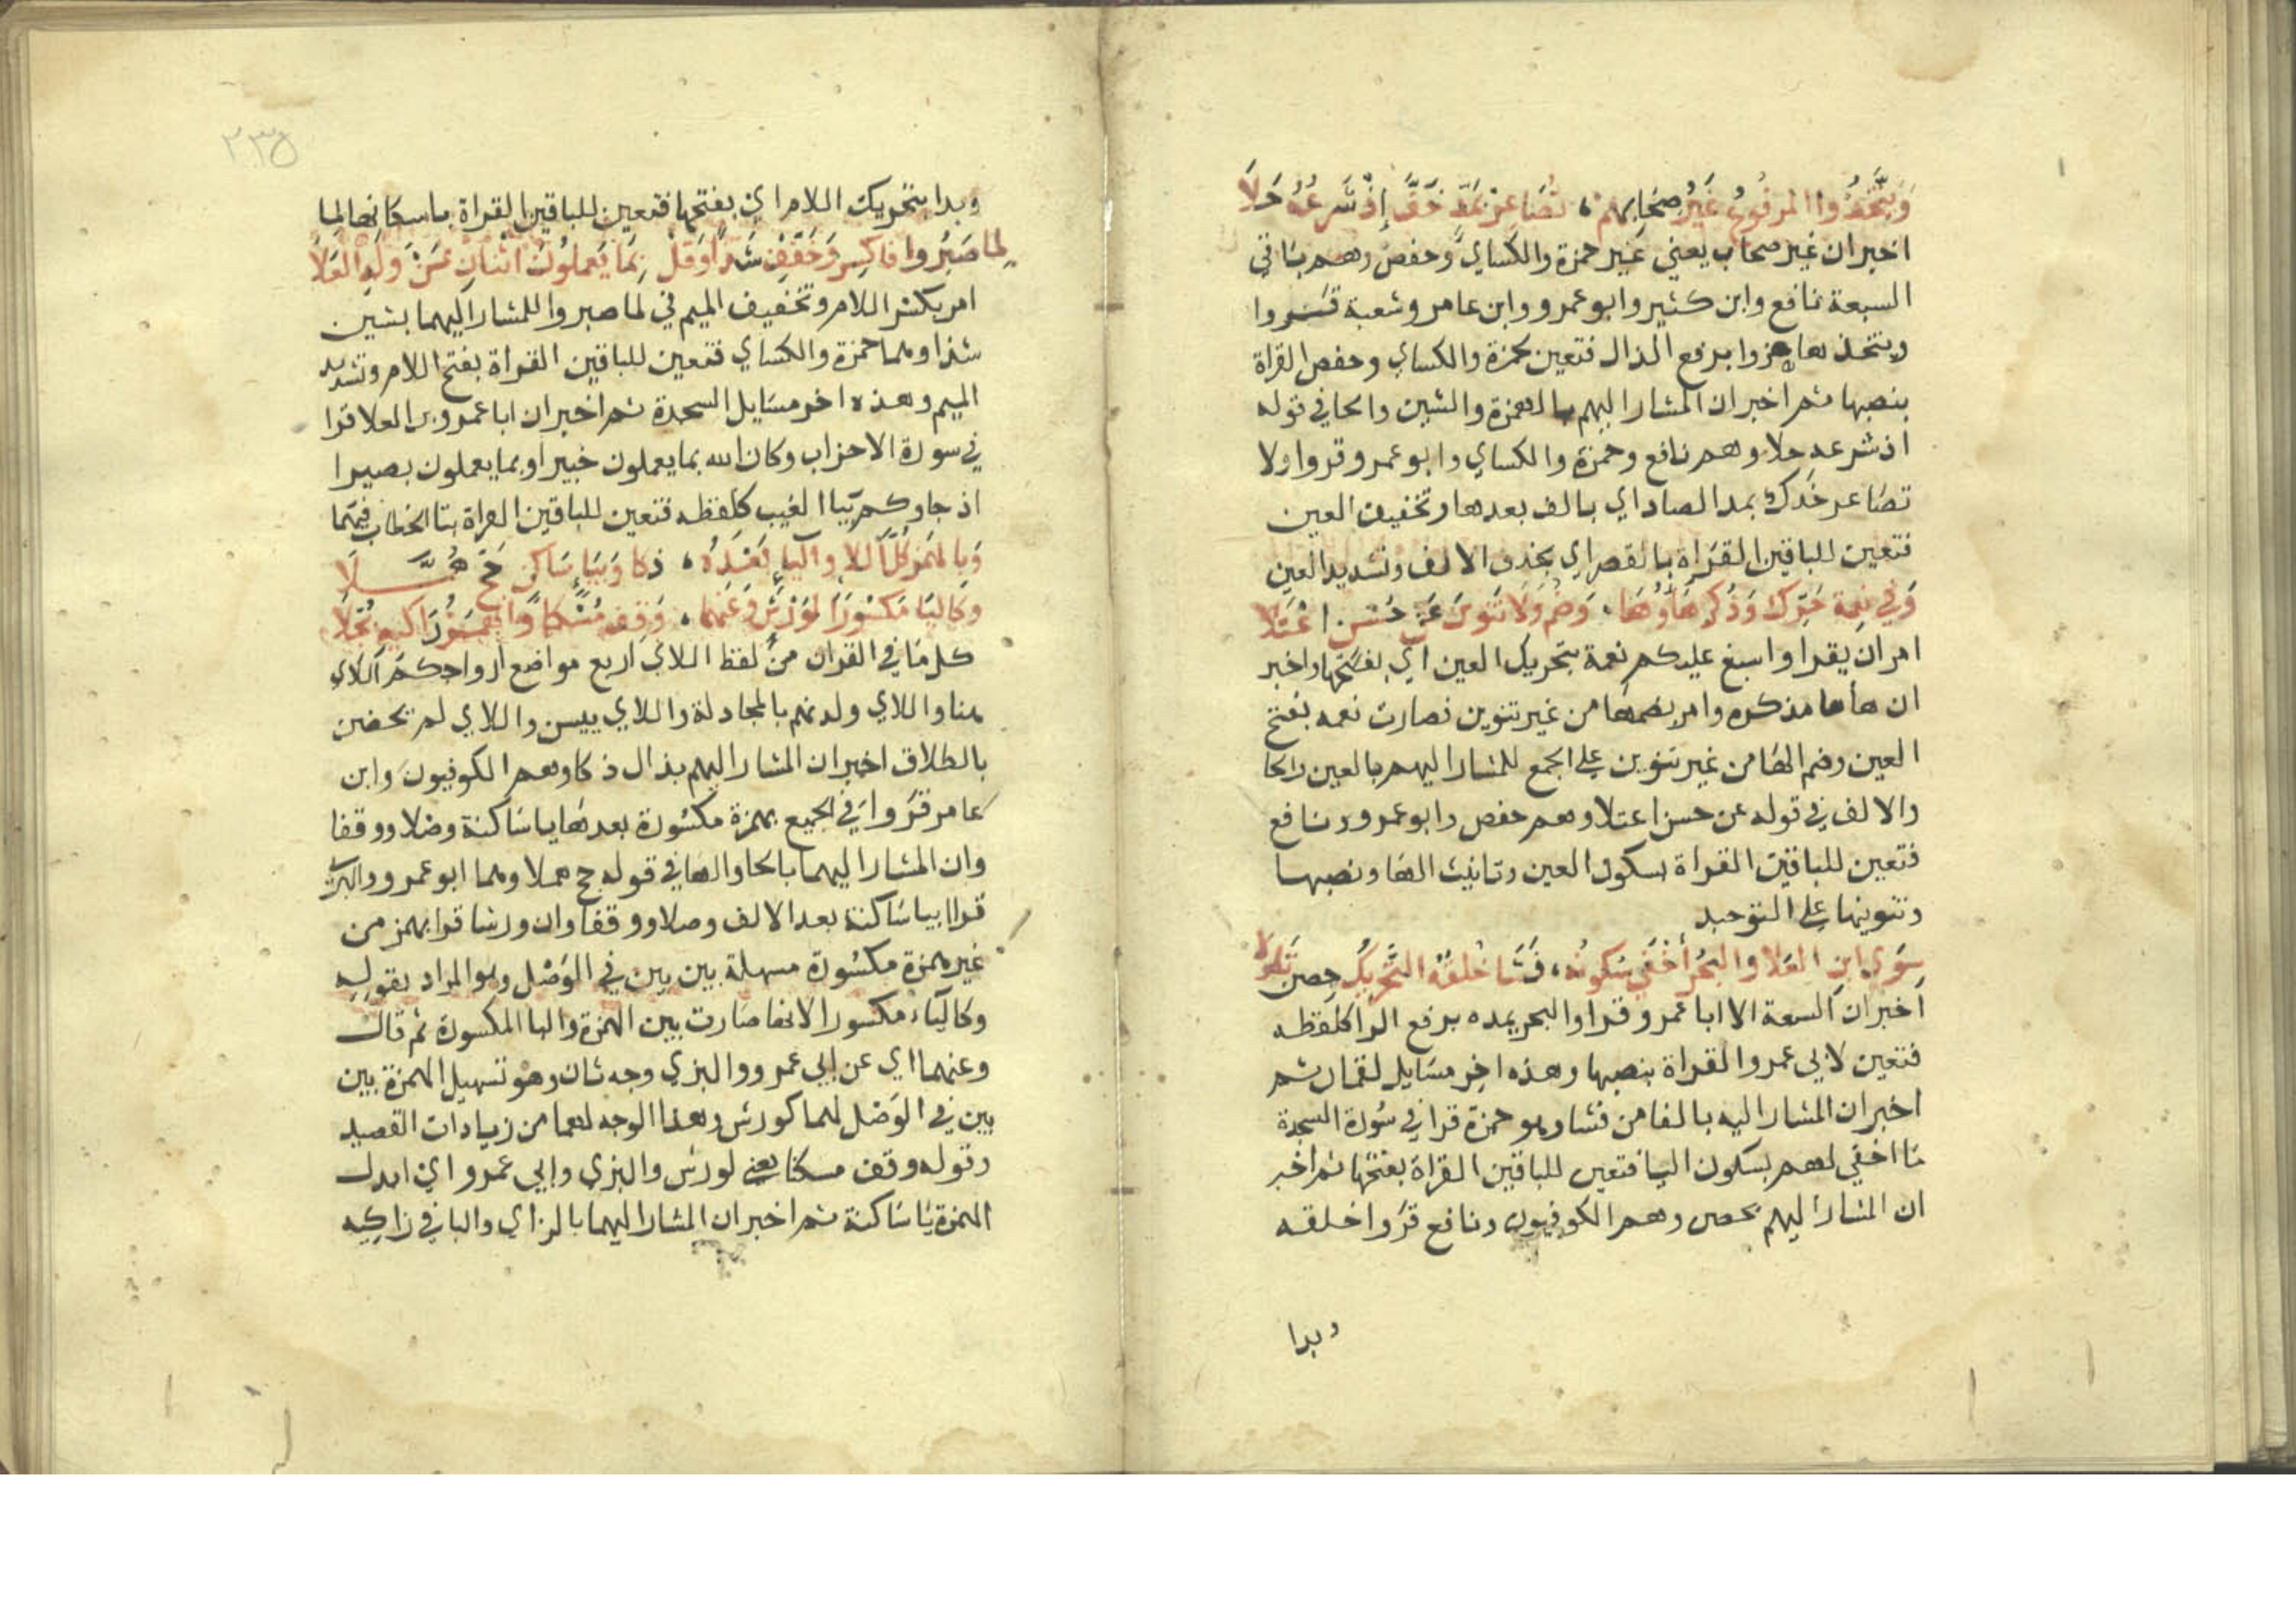 وَيَتَّخِذُ المرفُوعُ غَيْرُ صِحَابِهِمْ، تُصَاعِرْ بِمَدٍّ خَفَّ إِذْ شَرعُهُ حَلَا
اخبر ان غير صحاب يعني غير حمزة والكساي وحفص وهم باقي
السبعة نافع وابن كثير وابو عمرو وابن عامر وشعبة قروا
ويتخذها هزوا برفع الذال فتعين لحمزة والكساي وحفص القراة
بنصبها ثم اخبر ان المشار اليهم بالهمزة والشين والحا في قوله
اذ شرعه حلا وهم نافع وحمزة والكساي وابو عمرو قروا ولا
تصاعر خدك بمد الصاد اي بالف بعدها وتخفيف العين
فتعين للباقين القراة بالقصر اي بحذف الالف وتشديد العين
وَفي نِعمة حَرِّك وَذُكِّرَ هَاؤُهَا، وَضُمَّ وَلَا تَنوينَ عَن حُسْنٍ اعْتَلَا
امر ان يقرا واسبغ عليكم نعمة بتحريك العين اي بفتحها واخبر
ان هاها مذكره وامر بضمها من غير تنوين فصارت نعمه بفتح
العين وضم الها من غير تنوين على الجمع للمشار اليهم بالعين والحا
والالف في قوله عن حسن اعتلا وهم حفص وابو عمرو ونافع
فتعين للباقين القراة بسكون العين وتانيث الها ونصبها
وتنوينها على التوحيد
سِوَى ابنِ العَلا والبحرُ أُخْفِي سُكونُه، فَشَا خَلْقَهُ التَّحْرِيكُ حِصن تَطَوَّلَا
اخبر ان السبعة الا ابا عمرو قرا والبحر يمده برفع الرا كلفظه
فتعين لابي عمرو القراة بنصبها وهذه اخر مسايل لقمان ثم
اخبر ان المشار اليه بالفا من فشا وهو حمزة قرا في سورة السجدة
ما اخفي لهم بسكون اليا فتعين للباقين القراة بفتحها ثم اخبر
ان المشار اليهم بحصن وهم الكوفيون ونافع قروا خلقه
وبدا
٢٣٥
وبدا بتحريك اللام اي بفتحها فتعين للباقين القراة باسكانها
لِما صَبَرُوا فاكسِر وَخَفِّف شَذًا وَقُلْ بِمَا يَعملُونَ اثْنَانِ عَنْ وَلَدِ العَلَا
امر بكسر اللام وتخفيف الميم في لما صبروا للمشار اليهما بشين
شذا وهما حمزة والكساي فتعين للباقين القراة بفتح اللام وتشديد
الميم وهذه اخر مسايل السجدة ثم اخبر ان ابا عمرو بن العلا قرا
في سورة الاحزاب وكان الله بما يعملون خبيرا وبما يعملون بصيرا
اذ جاوكم بيا الغيب كلفظه فتعين للباقين القراة بتا الخطاب فيهما
وَبِالهَمزِ كُلُّ اللاءِ واليَاءِ بَعْدَهُ، ذكا وَبِيَاءٍ سَاكِنٍ حَجَّ هُمَّلَا
وَكَاليَا مَكسُورًا لِوَرْشٍ وَعَنهُما، وَقِف مُسْكِنًا وَالهَمْزُ زَاكيهِ بُجِّلَا
كل ما في القران من لفظ اللاي اربع مواضع ازواجكم اللاي
هنا واللاي ولدنهم بالمجادلة واللاي ييسن واللاي لم يحضن
بالطلاق اخبر ان المشار اليهم بذال ذكا وهم الكوفيون وابن
عامر قروا في الجميع بهمزة مكسورة بعدها يا ساكنة وصلا ووقفا
وان المشار اليهما بالحا والها في قوله حج هملا وهما ابو عمرو والبزي
قرا بيا ساكنة بعد الالف وصلا ووقفا وان ورشا قرا بهمز من
غير همزة مكسورة مسهلة بين بين في الوصل وهو المراد بقوله
وكالياء مكسورا لانها صارت بين الهمزة واليا المكسورة ثم قال
وعنهما اي عن ابي عمرو والبزي وجه ثان وهو تسهيل الهمزة بين
بين في الوصل لهما كورش وهذا الوجه لهما من زيادات القصيد
وقوله وقف مسكنا يعني لورش والبزي وابي عمرو اي ابدل
الهمزة يا ساكنة ثم اخبر ان المشار اليهما بالزاي والبا في زاكيه